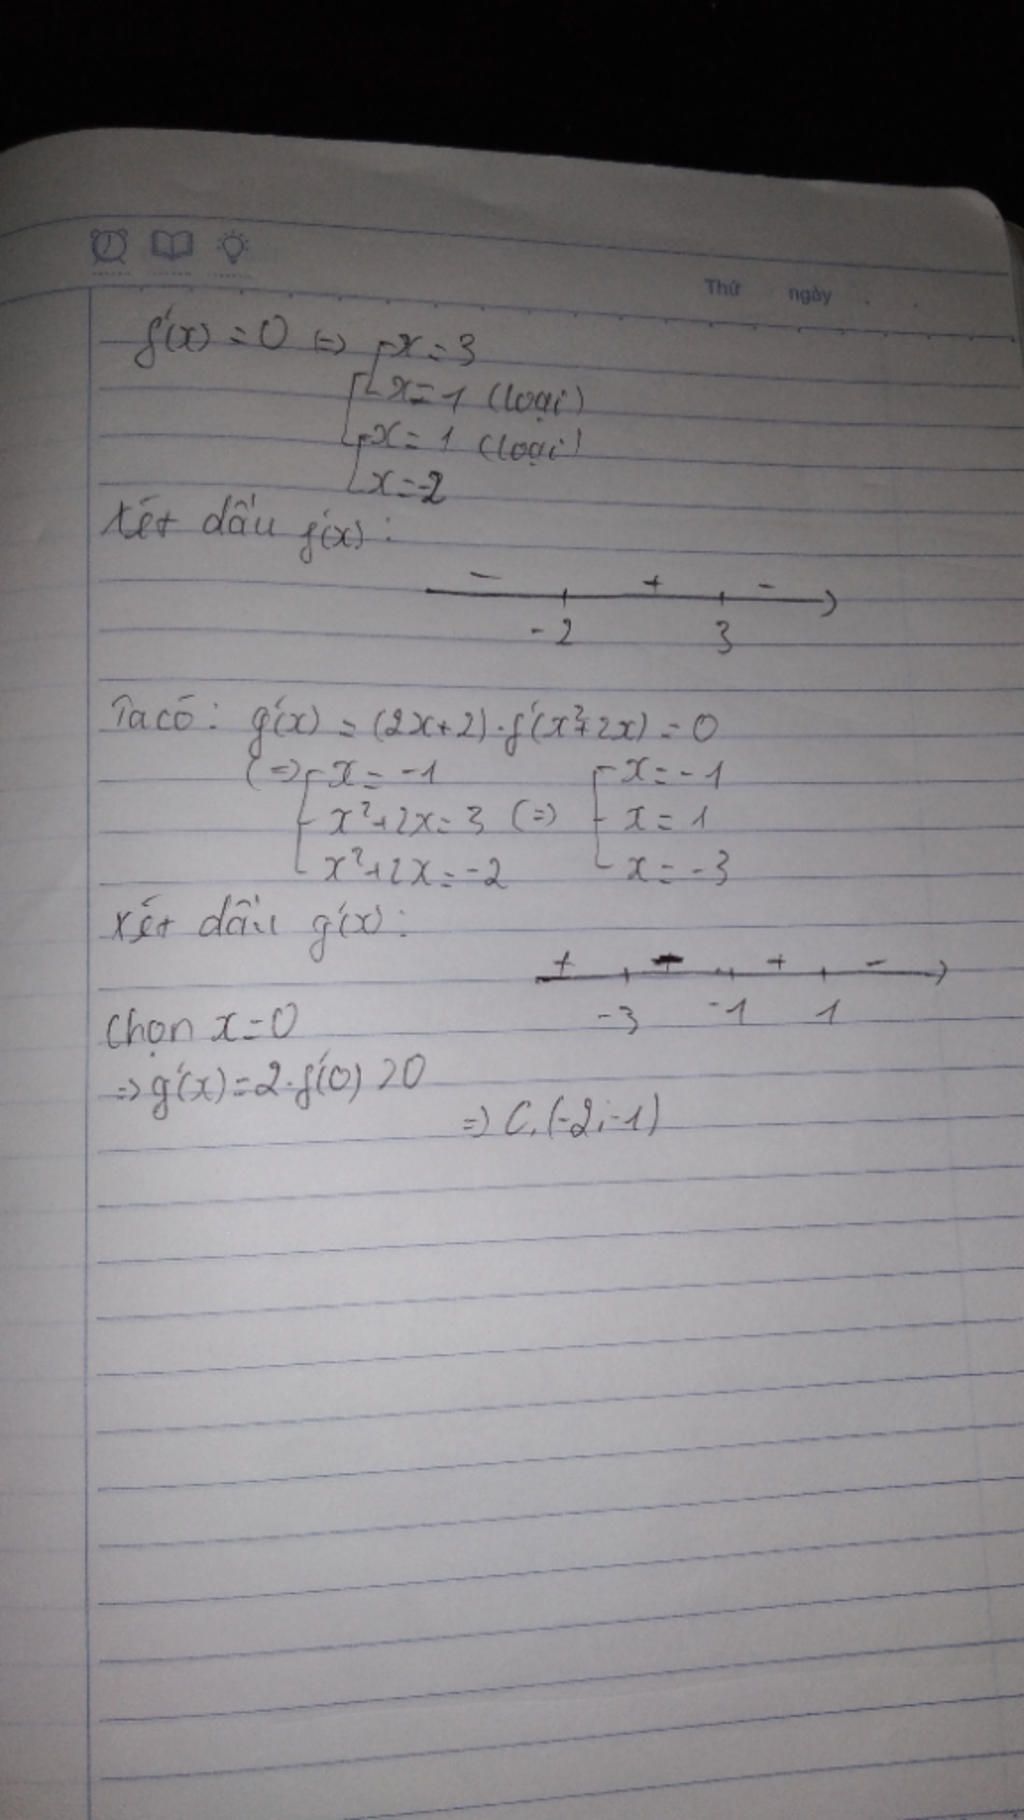 Thứ ngày
f'(x) = 0 (=) x = 3
x = 1 (loại)
x = 1 (loại)
x = -2
Xét dấu f'(x) :
- + -
-2 3
Ta có : g'(x) = (2x+2) . f'(x²+2x) = 0
(=) x = -1 x = -1
x²+2x = 3 (=) x = 1
x²+2x = -2 x = -3
Xét dấu g'(x) :
+ - + -
-3 -1 1
Chọn x = 0
=> g'(x) = 2 . f'(0) > 0
=> C. (-2; -1)